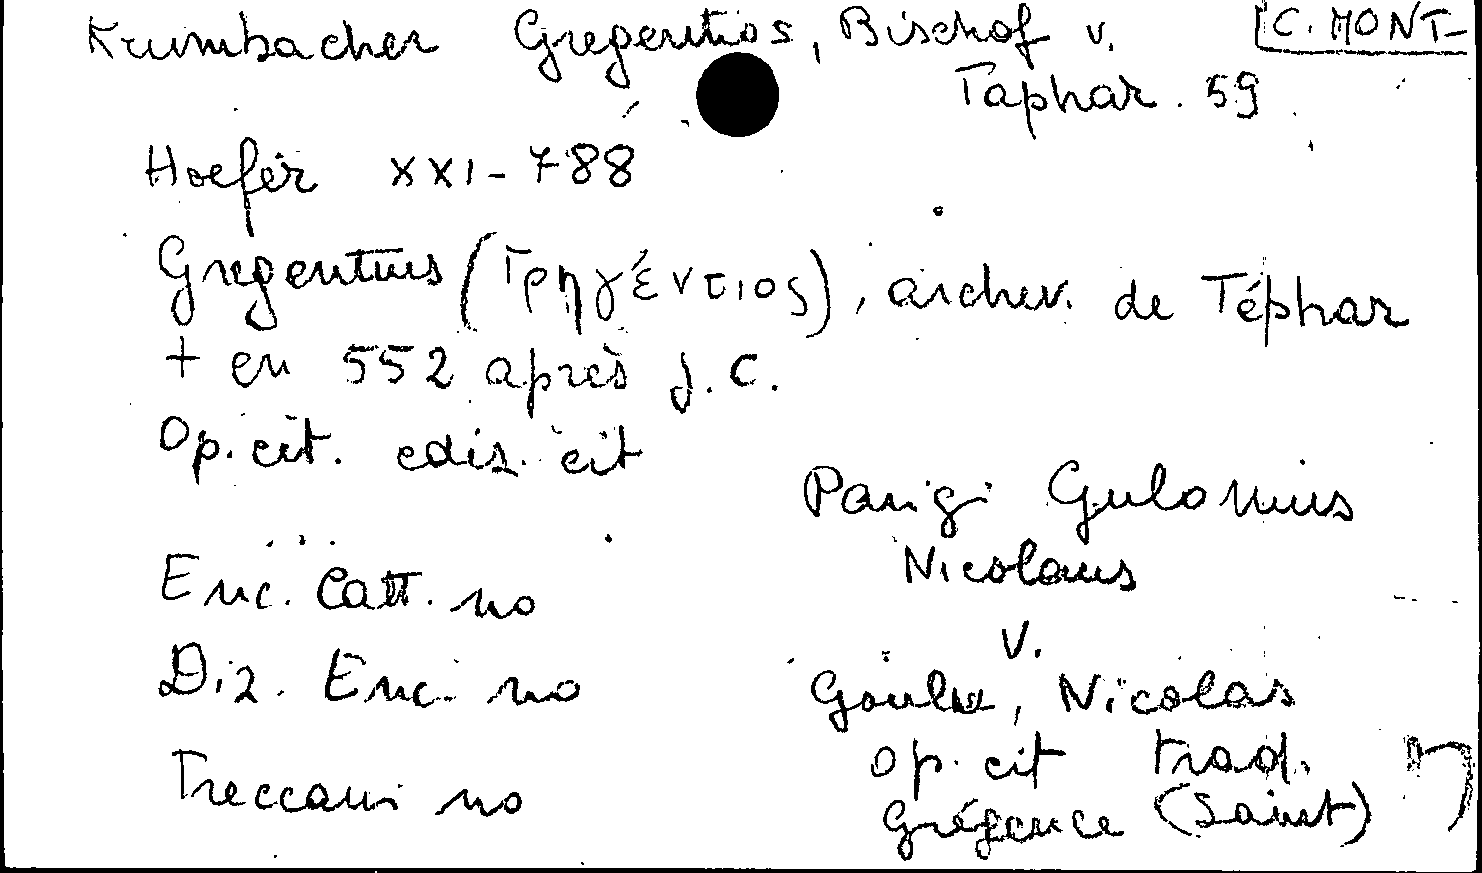 Krumbacher Gregentios, Bischof v. Taphar. 59
C. MONT-
Hoefer XXI-788
Gregentius (Γρηγέντιος), archev. de Téphar
+ en 552 après J.C.
Op. cit. ediz. cit
Parigi Gulonius
Nicolaus
Enc. Catt. no
V.
Diz. Enc. no
Goulu, Nicolas
Op. cit trad.
Treccani no
Grégence (Saint)